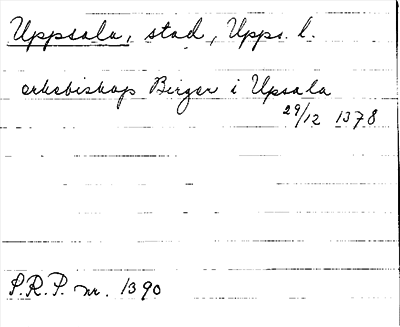 Uppsala, stad, Upps. l.
ärkebiskop Birger i Upsala
29/12 1378
S.R.P. nr. 1390